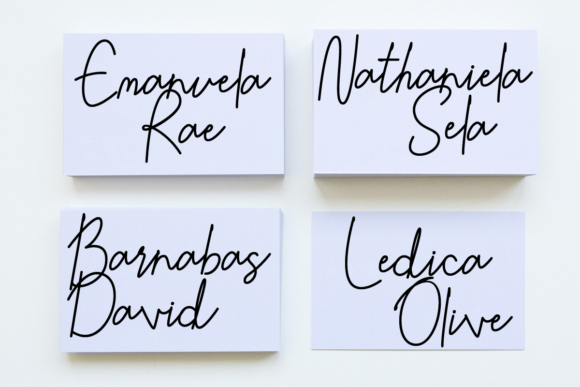 Emanuela
Rae
Nathaniela
Sela
Barnabas
David
Ledica
Olive